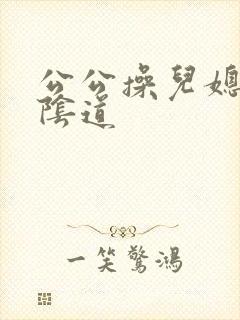 公公操兒媳
陰道
一笑驚鴻